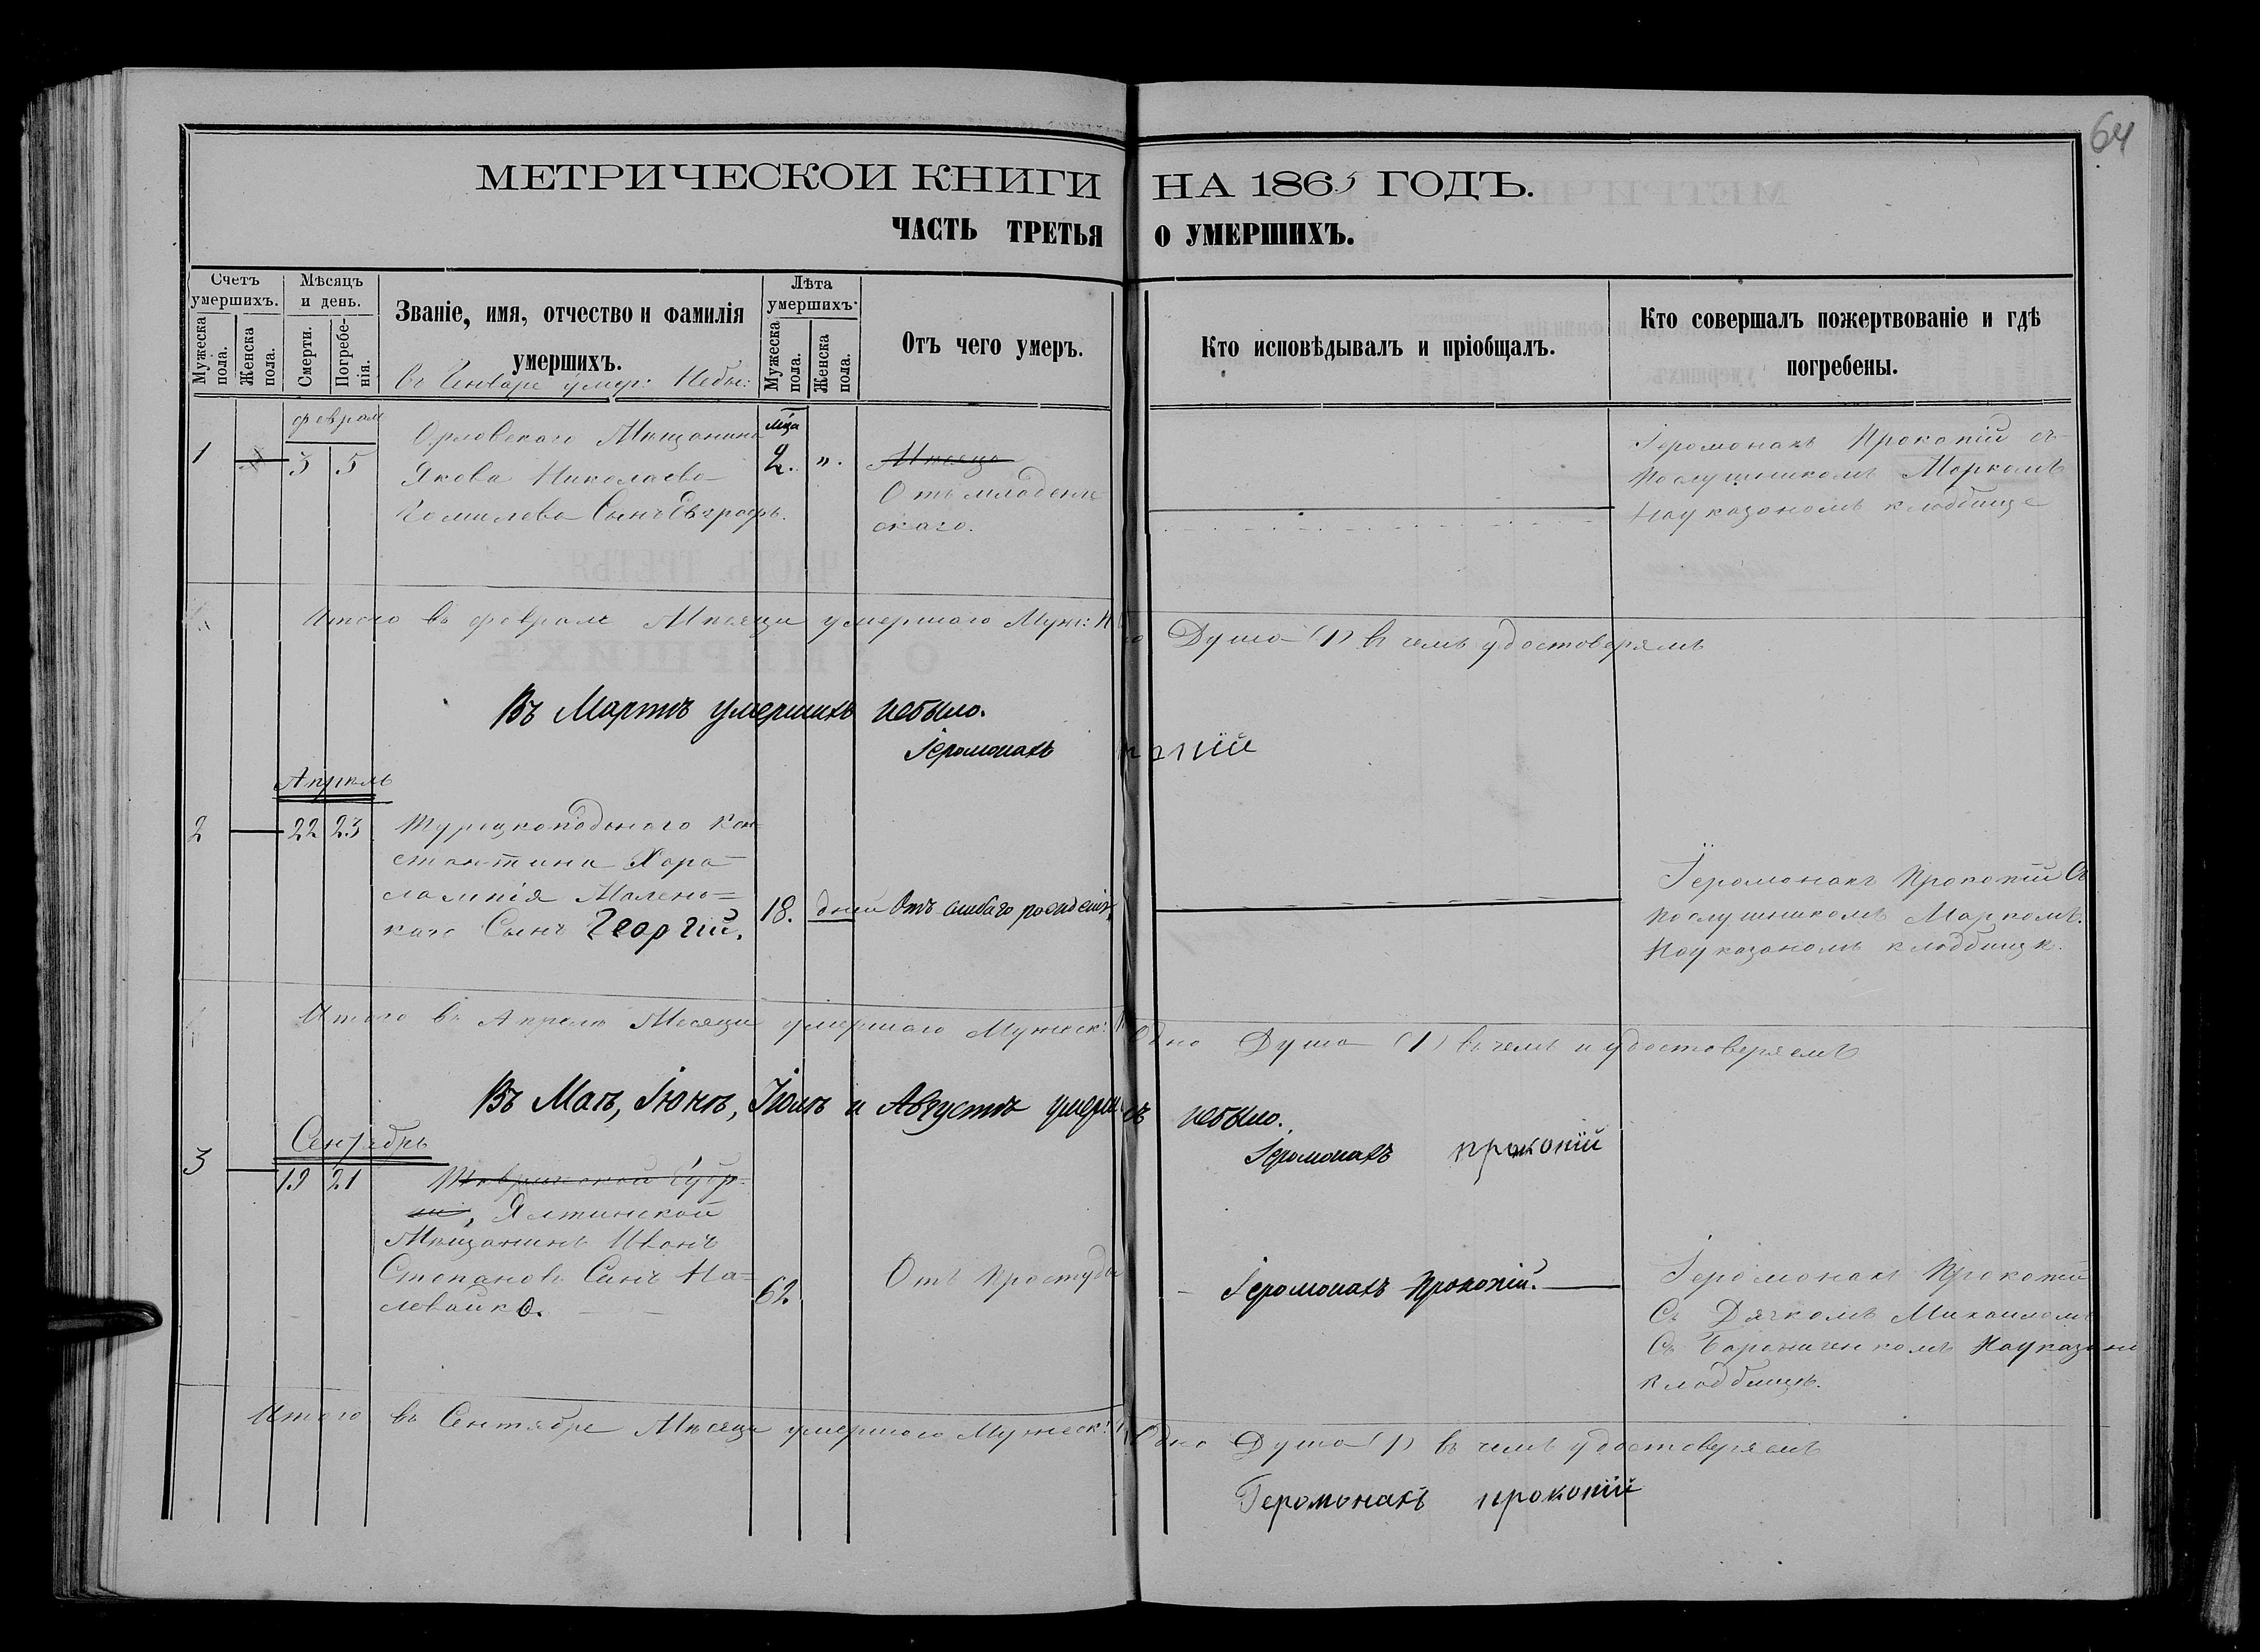 64
МЕТРИЧЕСКОЙ КНИГИ НА 1865 ГОДЪ.
ЧАСТЬ ТРЕТЬЯ О УМЕРШИХЪ.
Счетъ умершихъ.
Мужеска пола.
Женска пола.
Мѣсяцъ и день.
Смерти.
Погребенія.
Званіе, имя, отчество и фамилія
умершихъ.
Въ Генваре умер: Небы:
Лѣта умершихъ.
Мужеска пола.
Женска пола.
Отъ чего умеръ.
Кто исповѣдывалъ и пріобщалъ.
Кто совершалъ пожертвованіе и гдѣ
погребены.
феврал
1 3 5
Орловскаго Мѣщанина
Якова Николаева
Сынъ Евграфъ.
мца
2. ".
Мѣсяца
Отъ младенче
скаго.
Іеромонахъ Прокопій съ
Послушникомъ Маркомъ
На указаномъ кладбище
Итого въ феврале Мѣсяце умершаго Муж: Душа (1) въ чемъ удостоверяемъ
Въ Мартѣ умершихъ небыло.
Іеромонахъ
Апрѣль
2 22 23
Турецкоподонаго Кон-
стантина Хара-
лампія Малень=
каго Сынъ Георгій.
18. дней
Отъ слабаго рожденія
Іеромонахъ Прокопій Съ
Послушникомъ Маркомъ.
На указаномъ кладбищѣ.
Итого въ Апреле Месяце умершаго Мужеск: Одна Душа (1) въ чемъ и удостоверяемъ
Въ Маѣ, Іюнѣ, Іюлѣ и Августѣ небыло.
Іеромонахъ прокопій
Сентябрь
3 19 21
Таврической Губр-
ніи, Ялтинской
Мѣщанинъ Иванъ
Степановъ Синъ На=
левайко.
62.
Отъ Простуды
Іеромонахъ Прокопій.
Іеромонахъ Прокопій
Съ Дячкомъ Михаиломъ
На указано
Кладбищѣ.
Итого въ Сентябре Мѣсяце умершаго Мужеск: Одна Душа (1) въ чемъ удостоверяемъ
Іеромонахъ прокопій